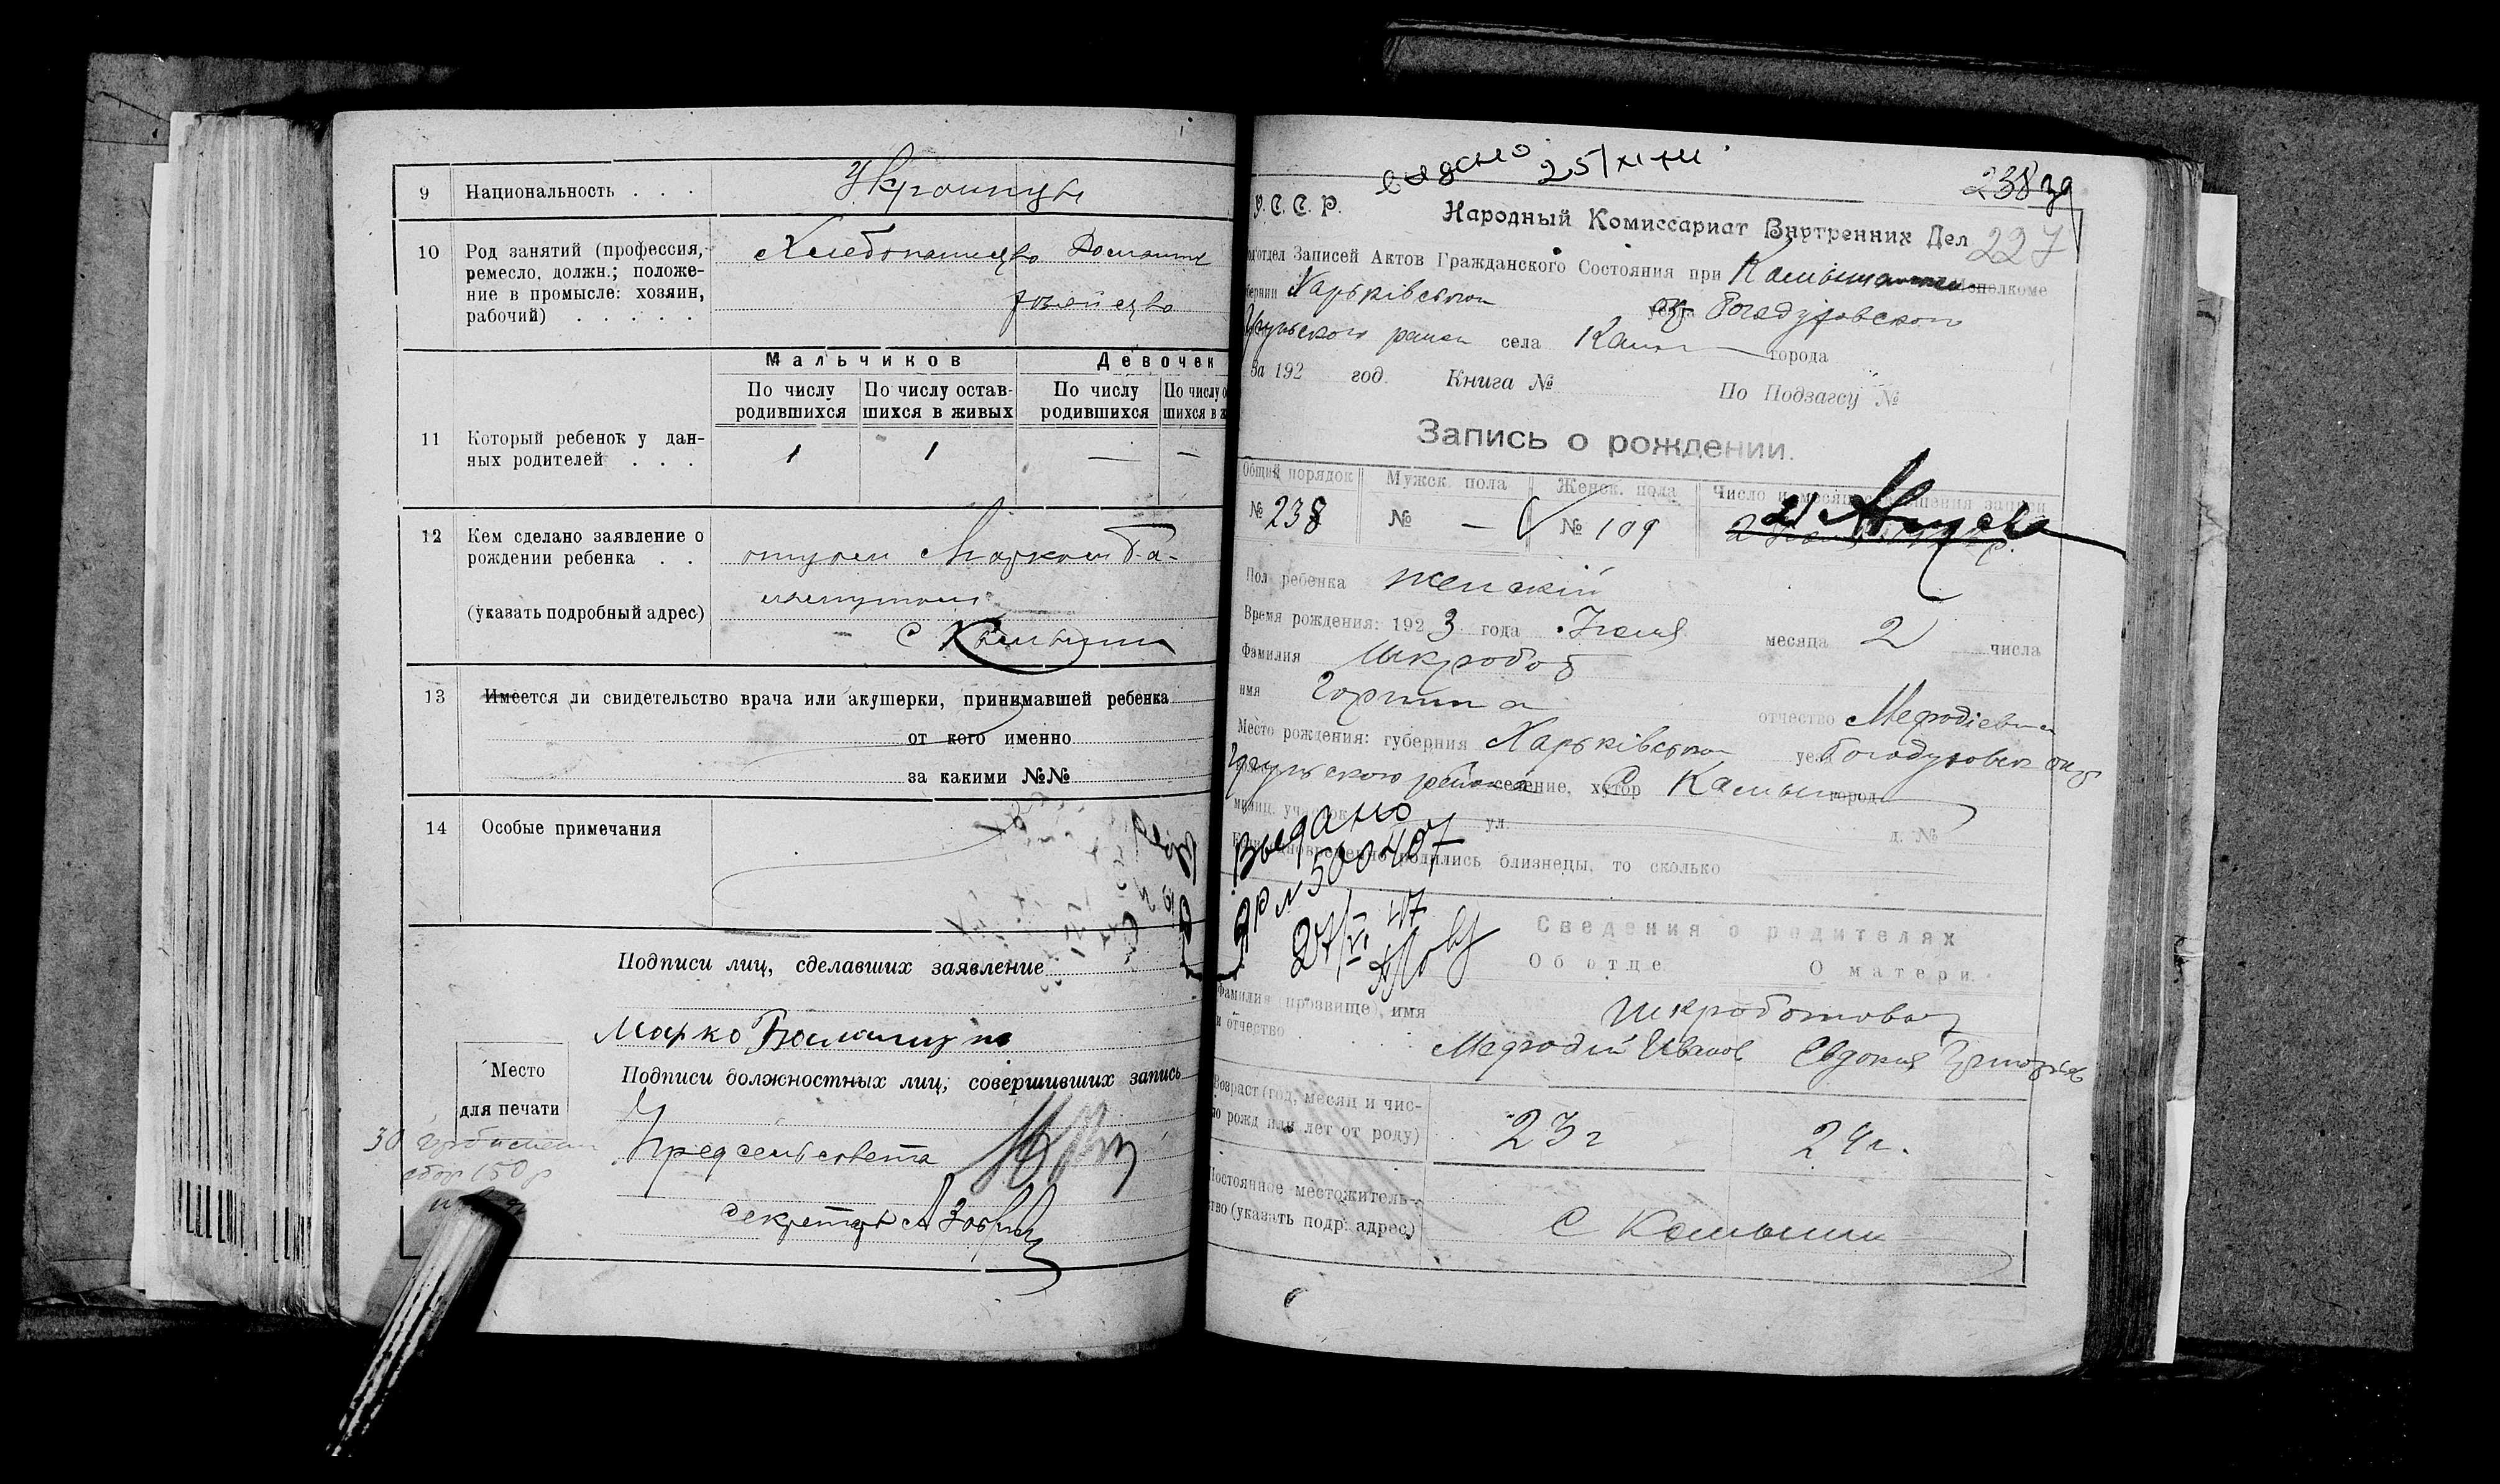 9 Национальность . . . Украинцы
10 Род занятий (профессия, Хлебопашество Домашне
ремесло, должн.; положе-
ние в промысле: хозяин, хозяйство
рабочий) . . . . .
Мальчиков Девочек
По числу родившихся По числу остав-шихся в живых По числу родившихся По числу
11 Который ребенок у дан-
ных родителей . . . 1 1 — —
12 Кем сделано заявление о
рождении ребенка . . отцом Марком Ба-
(указать подробный адрес)
С Камыши
13 Имеется ли свидетельство врача или акушерки, принимавшей ребенка
от кого именно
за какими №№
14 Особые примечания
Подписи лиц, сделавших заявление
Марко
Место
для печати
Подписи должностных лиц, совершивших запись
Предсельсовета
секретарь
30
сбор 150 р
видано 25/
238
У.С.С.Р. Народный Комиссариат Внутренних Дел 227
Записей Актов Гражданского Состояния при
Харьківской окр Богодуховского
района села Кам города
За 192 год. Книга № По Подзагсу №
Запись о рождении.
Общий порядок Мужск. пола Женск. пола Число и месяц совершения записи
№ 238 № — № 109 21 Августа
Пол ребенка женскій
Время рождения: 1923 года Июля месяца 2 числа
Фамилия Шкробот
имя Горпина отчество Мефодіевна
Место рождения: губерния Харьківська уезд Богодуховск окр
района селение, хутор С Камыши город
милиц. участок ул. д. №
Если одновременно родились близнецы, то сколько
Выдано
АР № 500407
27/VI 47
Сведения о родителях
Об отце. О матери.
Фамилия (прозвище), имя
и отчество Шкроботовы
Мефодій Иванов Евдокия Григорьев
Возраст (год, месяц и чис-
ло рожд или лет от роду) 23 г 24 г.
Постоянное местожитель-
ство (указать подр. адрес) С Камыши